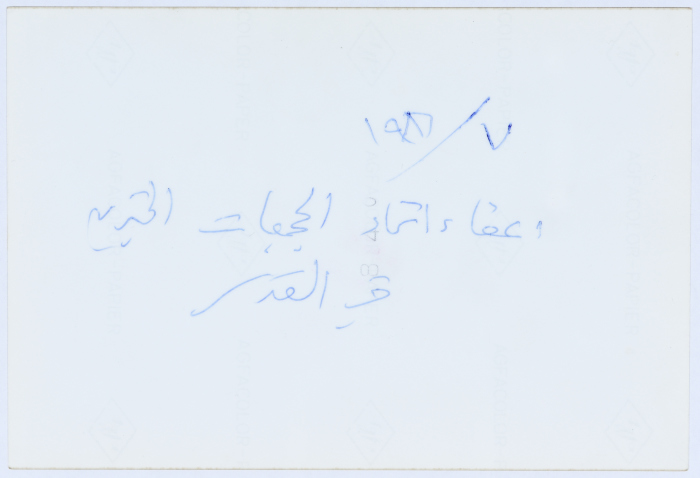 ٧/١٩٨٦
أعضاء اتحاد الجمعيات الخيرية
في القدس